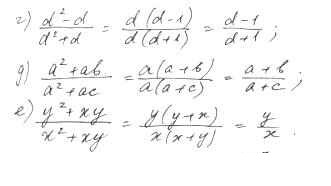 г) (d² - d)/(d² + d) = (d(d-1))/(d(d+1)) = (d-1)/(d+1);
д) (a² + ab)/(a² + ac) = (a(a+b))/(a(a+c)) = (a+b)/(a+c);
е) (y² + xy)/(x² + xy) = (y(y+x))/(x(x+y)) = y/x.